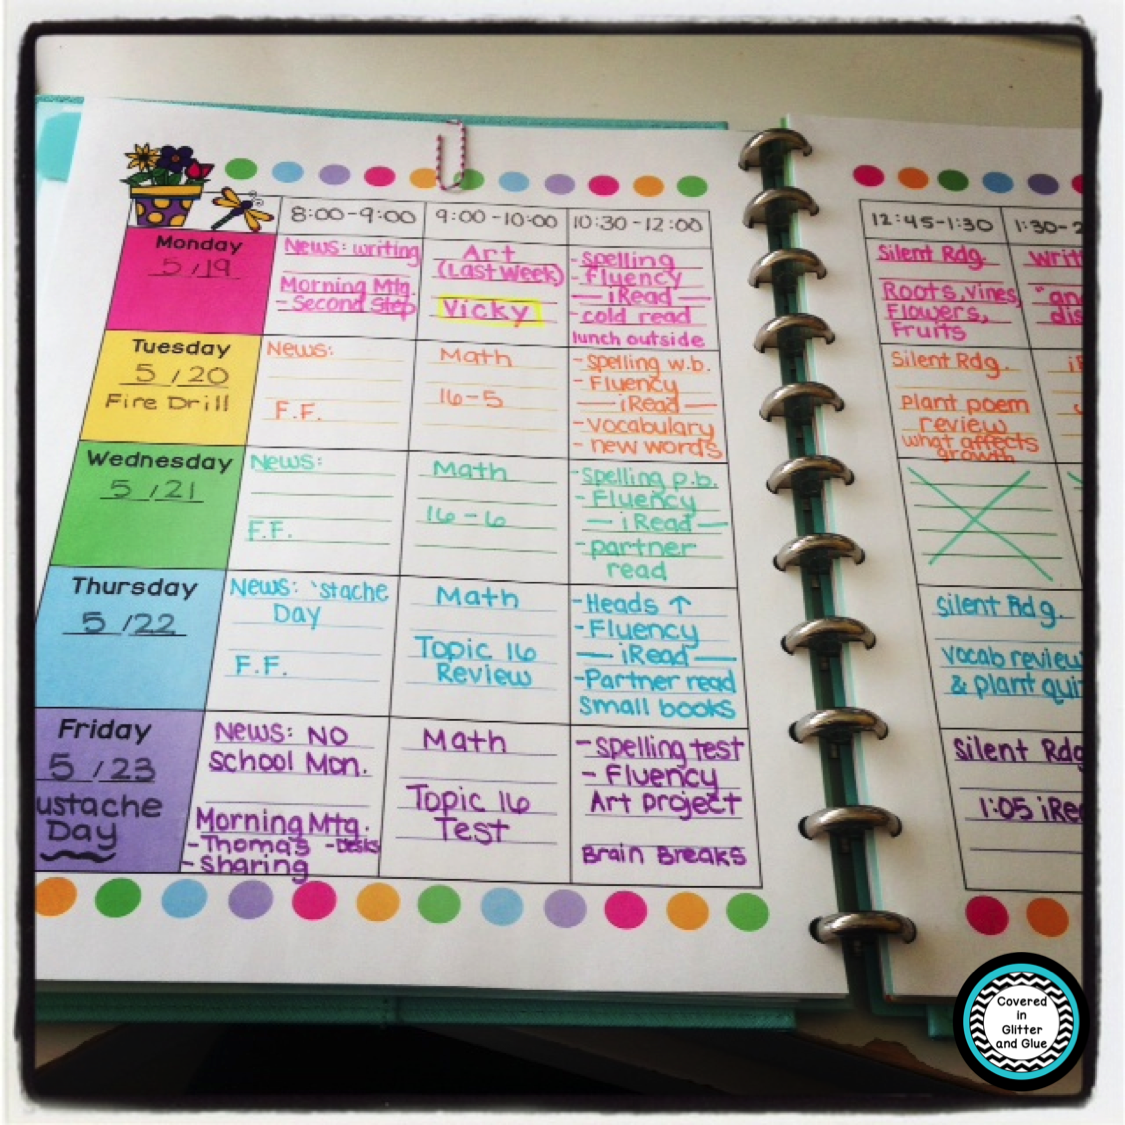 8:00-9:00
9:00-10:00
10:30-12:00
12:45-1:30
1:30-2
Monday
5/19
News: writing
Morning Mtg.
- Second Step
Art
(Last Week)
Vicky
- Spelling
- Fluency
— iRead —
- cold read
lunch outside
Silent Rdg.
Roots, vines,
Flowers,
Fruits
Tuesday
5/20
Fire Drill
News:
F.F.
Math
16-5
- Spelling w.b.
- Fluency
— iRead —
- vocabulary
- new words
Silent Rdg.
Plant poem
review
what affects
growth
Wednesday
5/21
News:
F.F.
Math
16-6
- Spelling p.b.
- Fluency
— iRead —
- partner
read
Thursday
5/22
News: 'stache
Day
F.F.
Math
Topic 16
Review
- Heads ↑
- Fluency
— iRead —
- Partner read
Small books
Silent Rdg.
vocab review
& plant qui
Friday
5/23
ustache
Day
News: NO
School Mon.
Morning Mtg.
- Thomas - Desks
- Sharing
Math
Topic 16
Test
- Spelling test
- Fluency
Art project
Brain Breaks
Silent Rdg
1:05 iRea
Covered
in
Glitter
and Glue